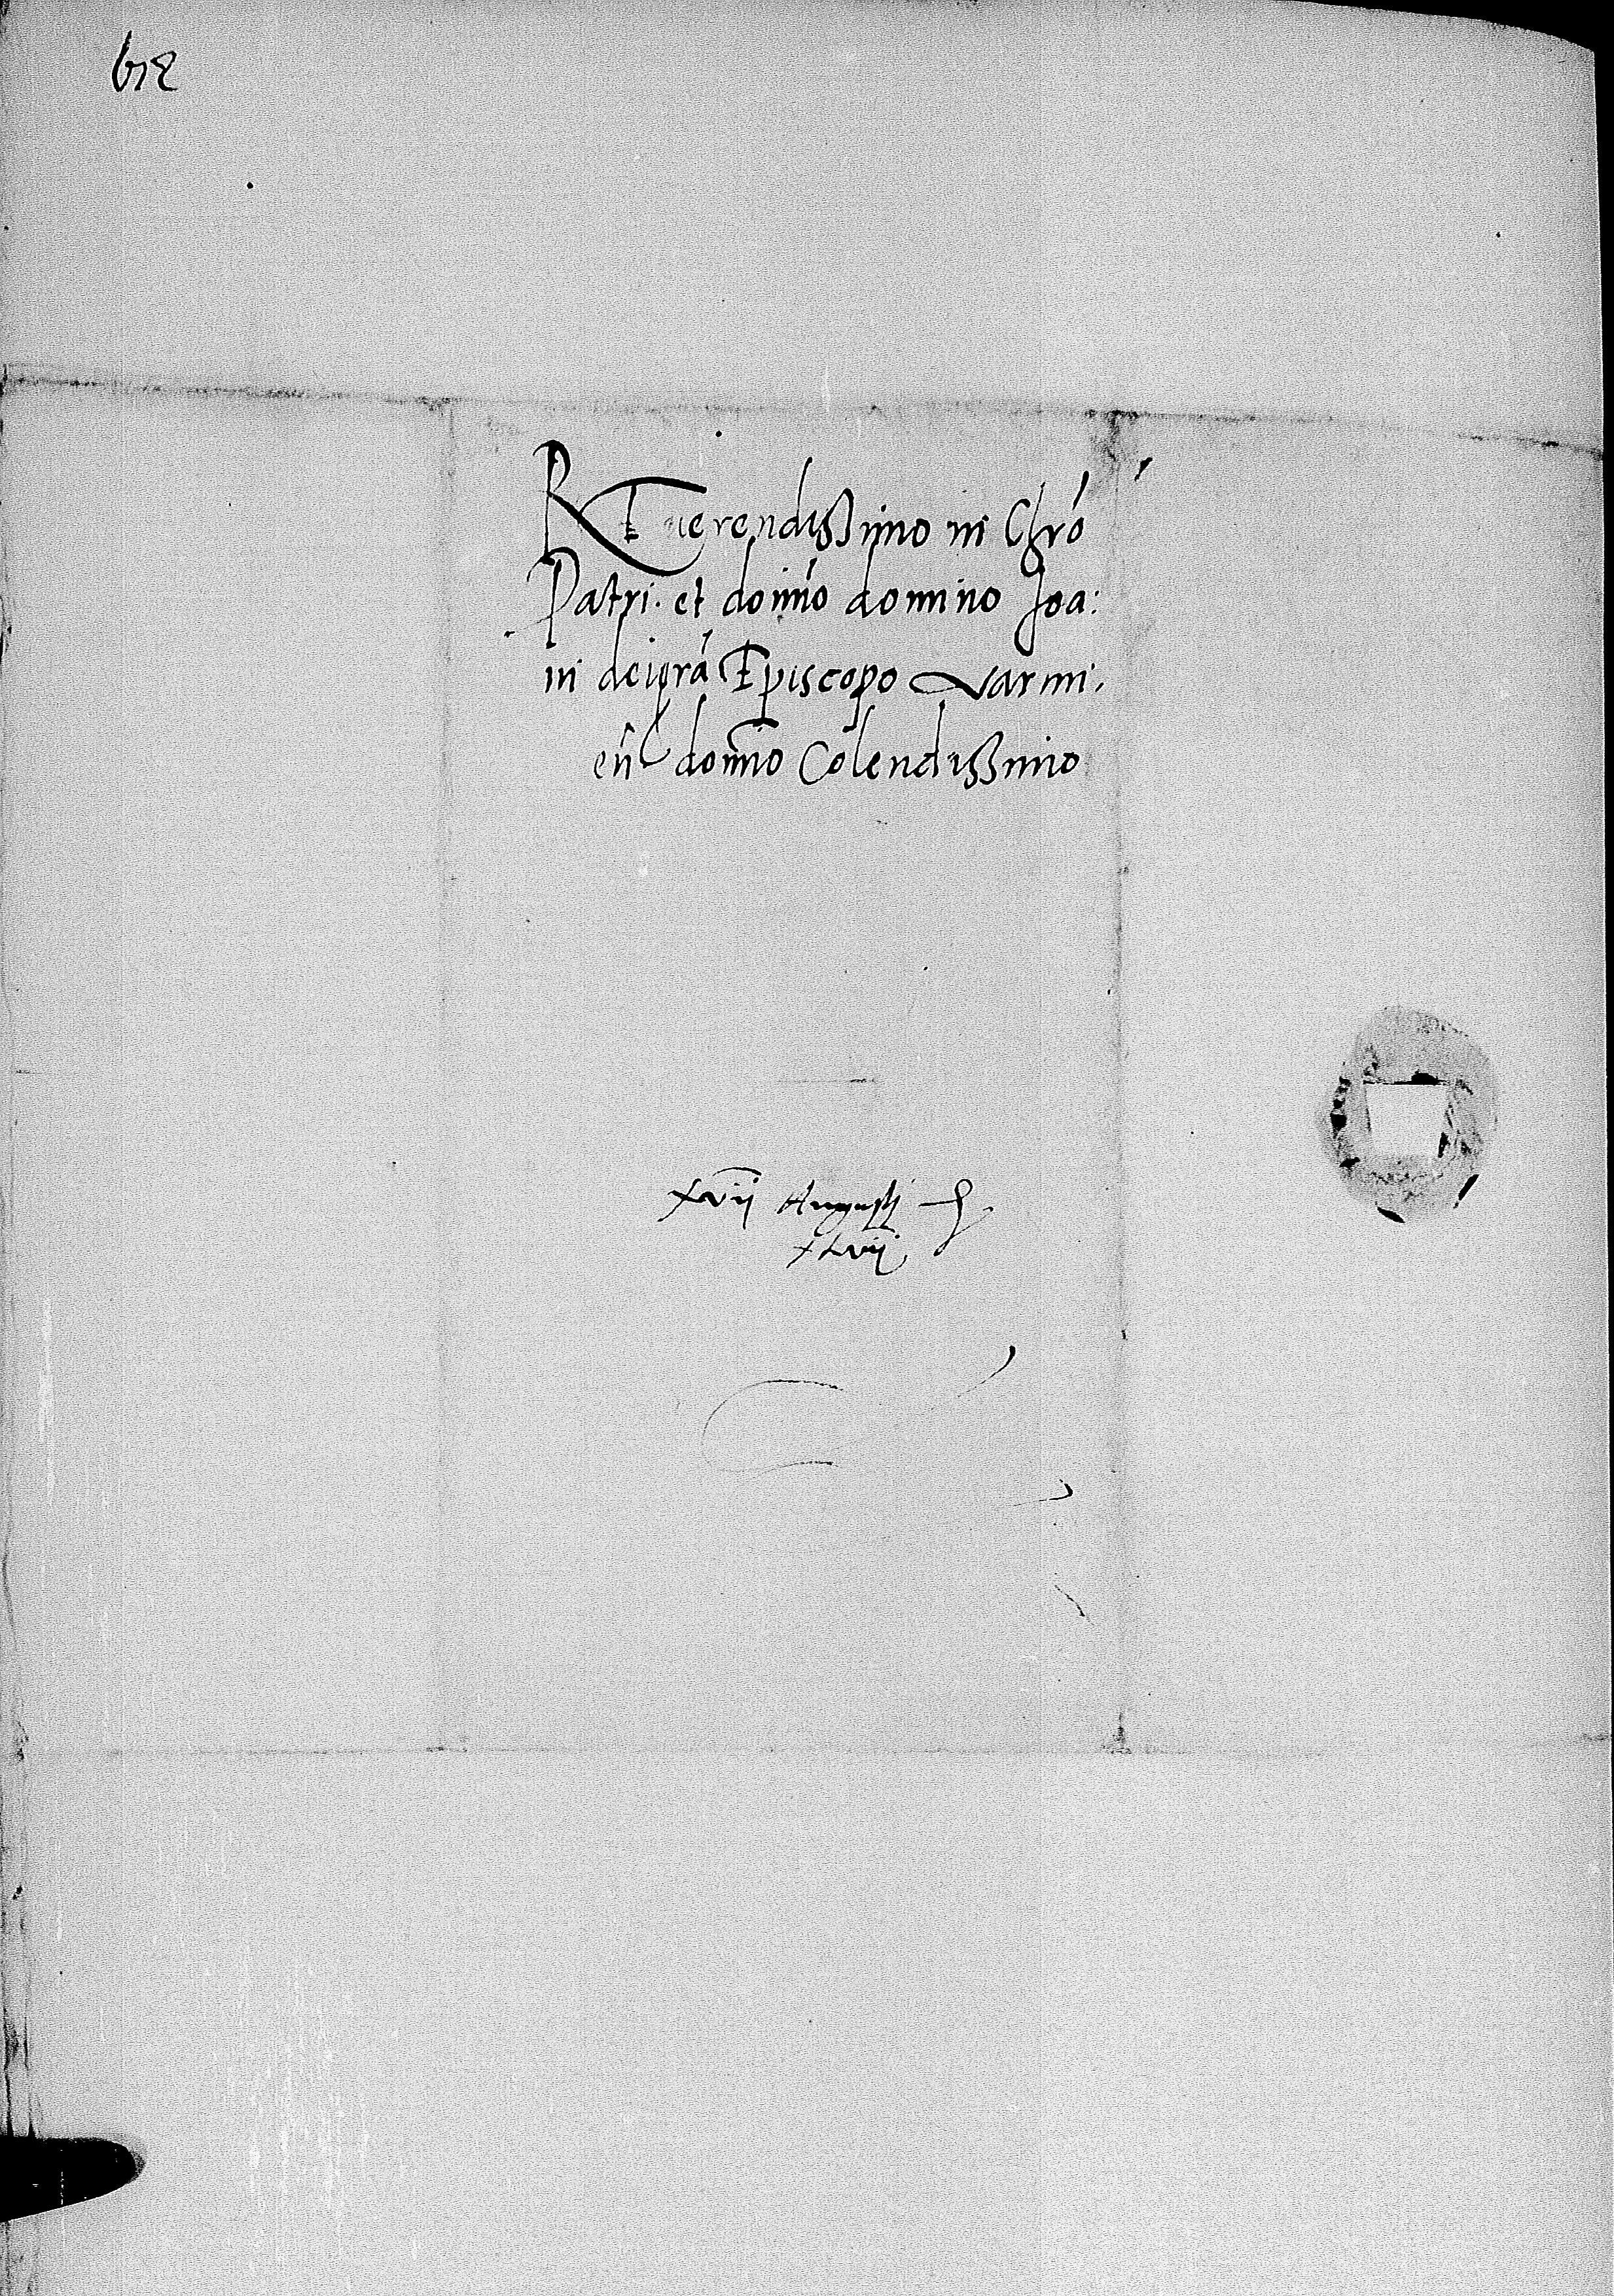 REuerendissimo in Chrō
Patri. et domīo domino Joa:
ni dei grā Episcopo Varmi.
eñ domīo Colendissimo
xvij Augusti
xlvij